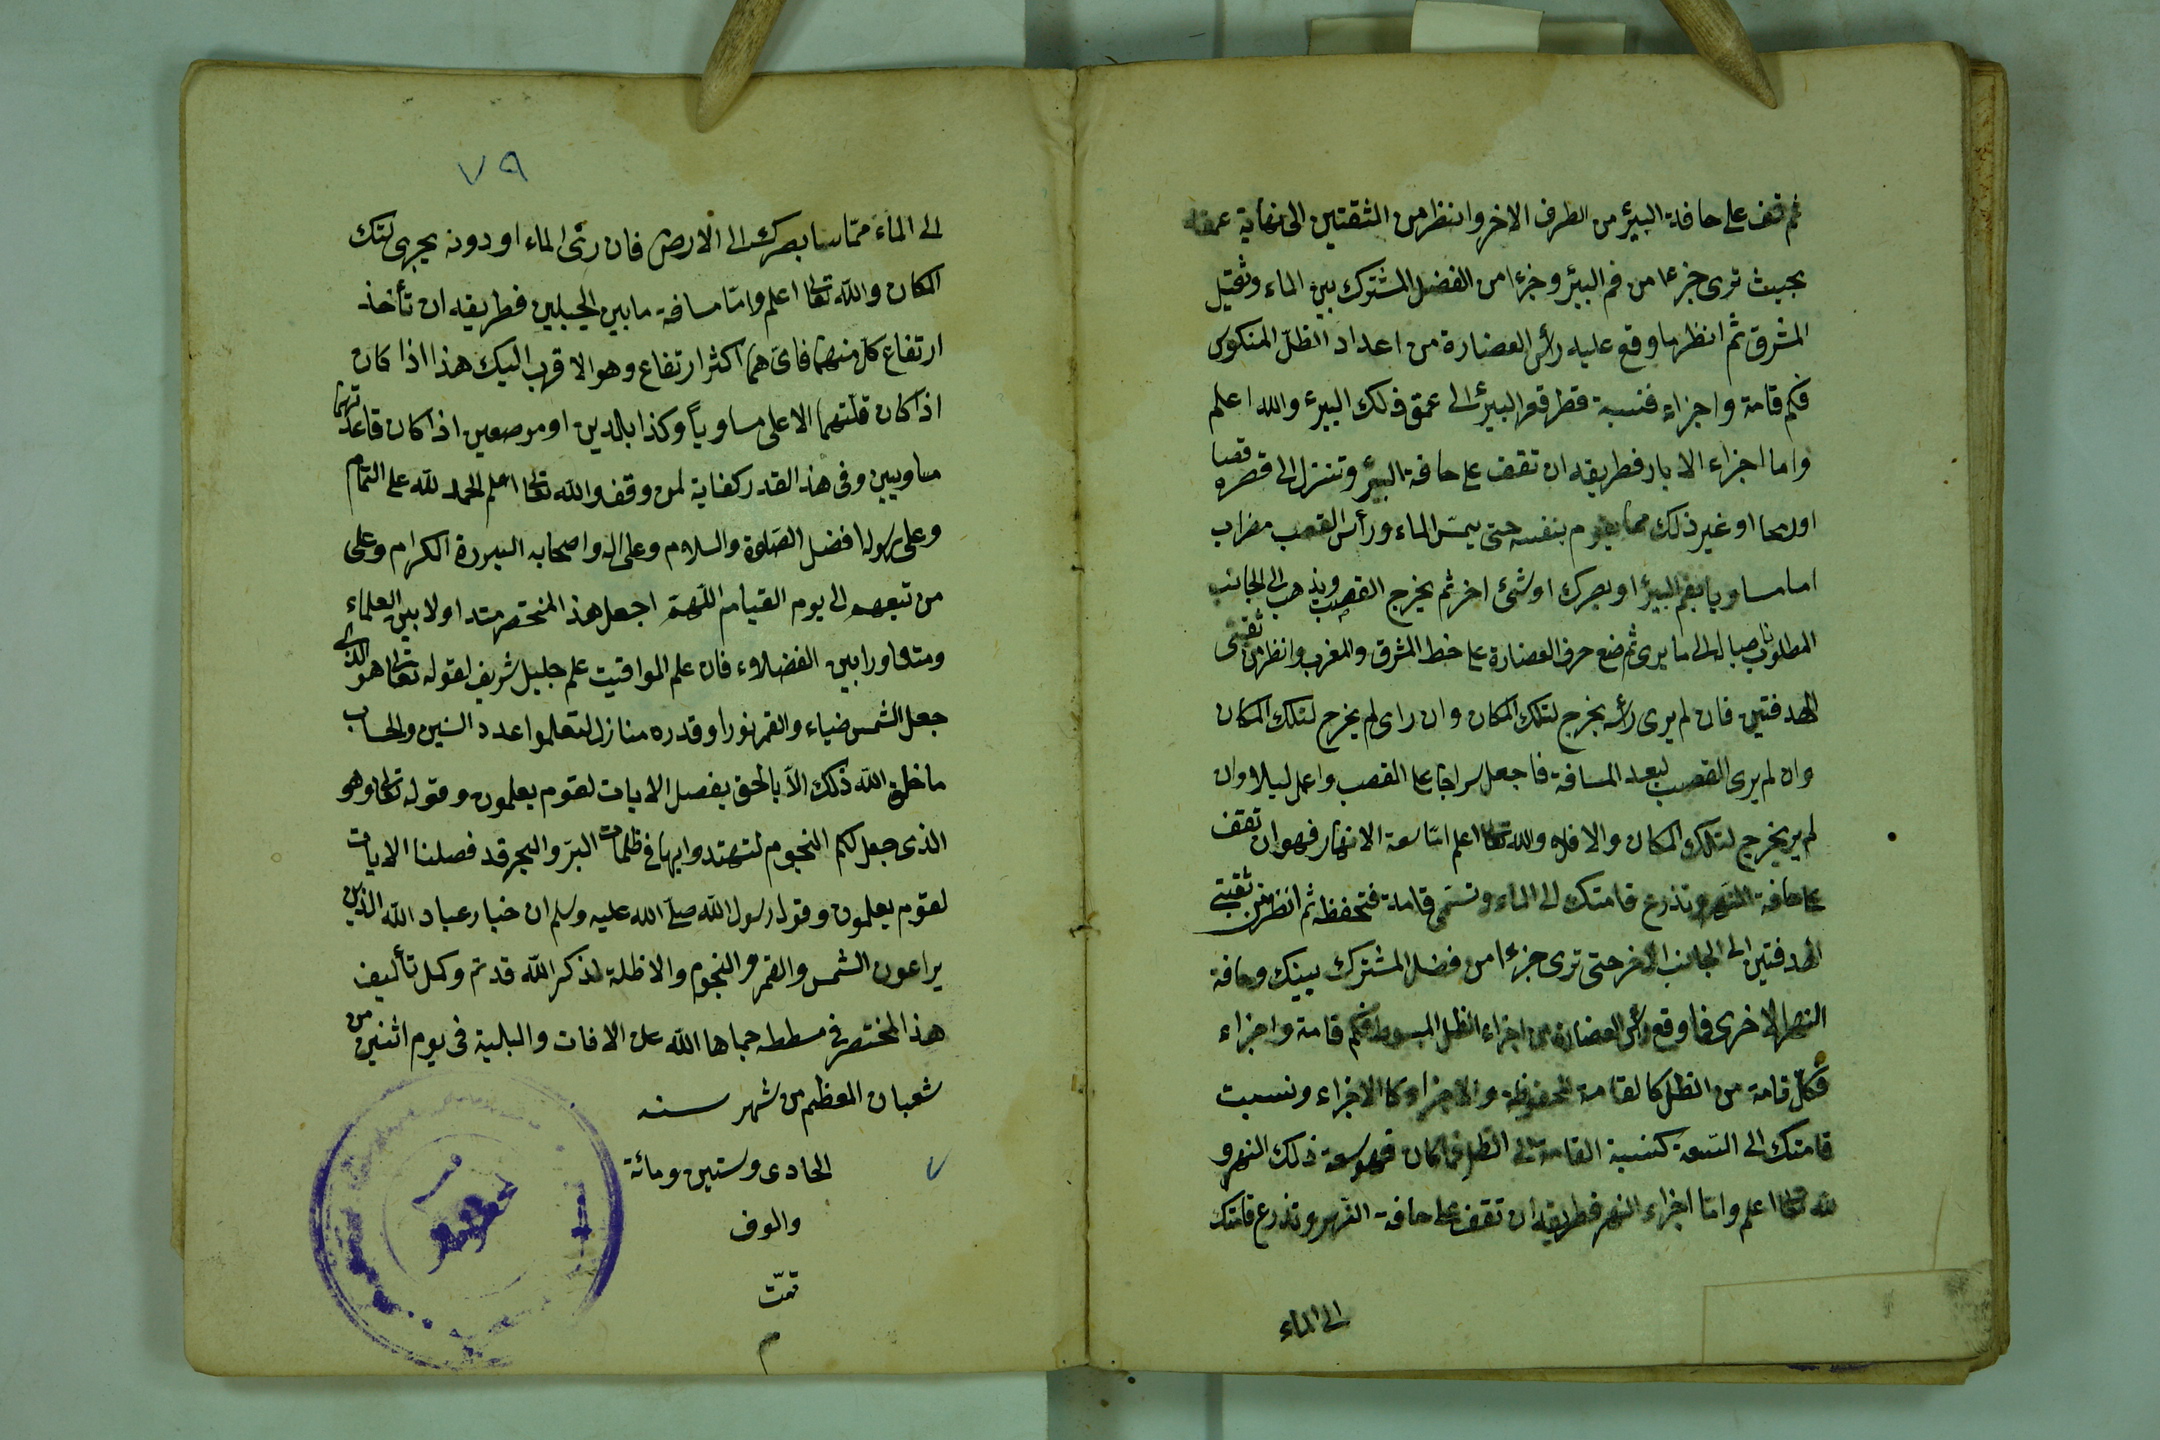 ثم تقف على حافة البير من الطرف الاخر وانظر من الثقتين الى نهاية عمقه
بحيث ترى جزءا من فم البير وجزءا من الفضل المشترك بين الماء وثقيل
المشرق ثم انظر ما وقع عليه رأس العضارة من اعداد الظل المنكوس
فكم قامة واجزاء فنسبة قطر فم البير الى عمق ذلك البير والله اعلم
واما اجزاء الابار فطريقه ان تقف على حافة البير وتنزل الى قصره قصبا
او رمحا او غير ذلك مما يقوم بنفسه حتى يمس الماء ورأس القصب
اما مساويا بفم البير او بصرك او شئ اخر ثم يخرج القصب ويذهب الى الجانب
المطلوب ناصبا له الى ما يرى ثم ضع حرف العضارة على خط المشرق والمغرب وانظر من ثقبتي
الهدفتين فان لم يرى رأسه يخرج لتلك المكان وان راى لم يخرج لتلك المكان
وان لم يرى القصب لبعد المسافة فاجعل سراجا على القصب واعمل ليلا وان
لم ير يخرج لتلك المكان والا فلا والله تعالى اعلم اما سعة الانهار فهو ان تقف
على حافة النهر وتذرع قامتك الى الماء وتسمى قامة فتحفظه ثم انظر من ثقبتي
الهدفتين الى الجانب الاخر حتى ترى جزءا من فضل المشترك بينك وحافة
النهر الاخرى فما وقع رأس العضارة من اجزاء الظل المبسوط فكم قامة واجزاء
فكل قامة من الظل كالقامة المحفوظة والاجزاء كالاجزاء ونسبت
قامتك الى السعة كنسبة القامة الى الظل فما كان فهو سعة ذلك النهر و
لله تعالى اعلم واما اجزاء النهر فطريقه ان تقف على حافة النهر وتذرع قامتك
الى الماء
٧٩
الى الماء مماسا بصرك الى الارض فان رئى الماء او دونه يجرى لتلك
المكان والله تعالى اعلم واما مسافة ما بين الجبلين فطريقه ان تأخذ
ارتفاع كل منهما فاى هما اكثر ارتفاع وهو الاقرب اليك هذا اذا كان
اذا كان قلتهما الاعلى مساويا وكذا بلدين او موضعين اذا كان قاعدتهما
مساويين وفى هذا القدر كفاية لمن وقف والله تعالى اعلم الحمد لله على التمام
وعلى رسوله افضل الصلاة والسلام وعلى اله واصحابه البررة الكرام وعلى
من تبعهم الى يوم القيام اللهم اجعل هذ المختصر متداولا بين العلماء
ومتداورا بين الفضلاء فان علم المواقيت علم جليل شريف لقوله تعالى هو الذى
جعل الشمس ضياء والقمر نورا وقدره منازل لتعلموا عدد السنين والحساب
ما خلق الله ذلك الا بالحق يفصل الايات لقوم يعلمون وقوله تعالى وهو
الذى جعل لكم النجوم لتهتدوا بها فى ظلمات البر والبحر قد فصلنا الايات
لقوم يعلمون وقول رسول الله صلى الله عليه وسلم ان خيار عباد الله الذين
يراعون الشمس والقمر والنجوم والاظلة لذكر الله قد تم وكمل تأليف
هذ المختصر فى مسططه حماها الله عن الافات والبلية فى يوم اثنين من
شعبان المعظم من شهر سنه
الحادى وستين ومائة
والوف
تمت
م